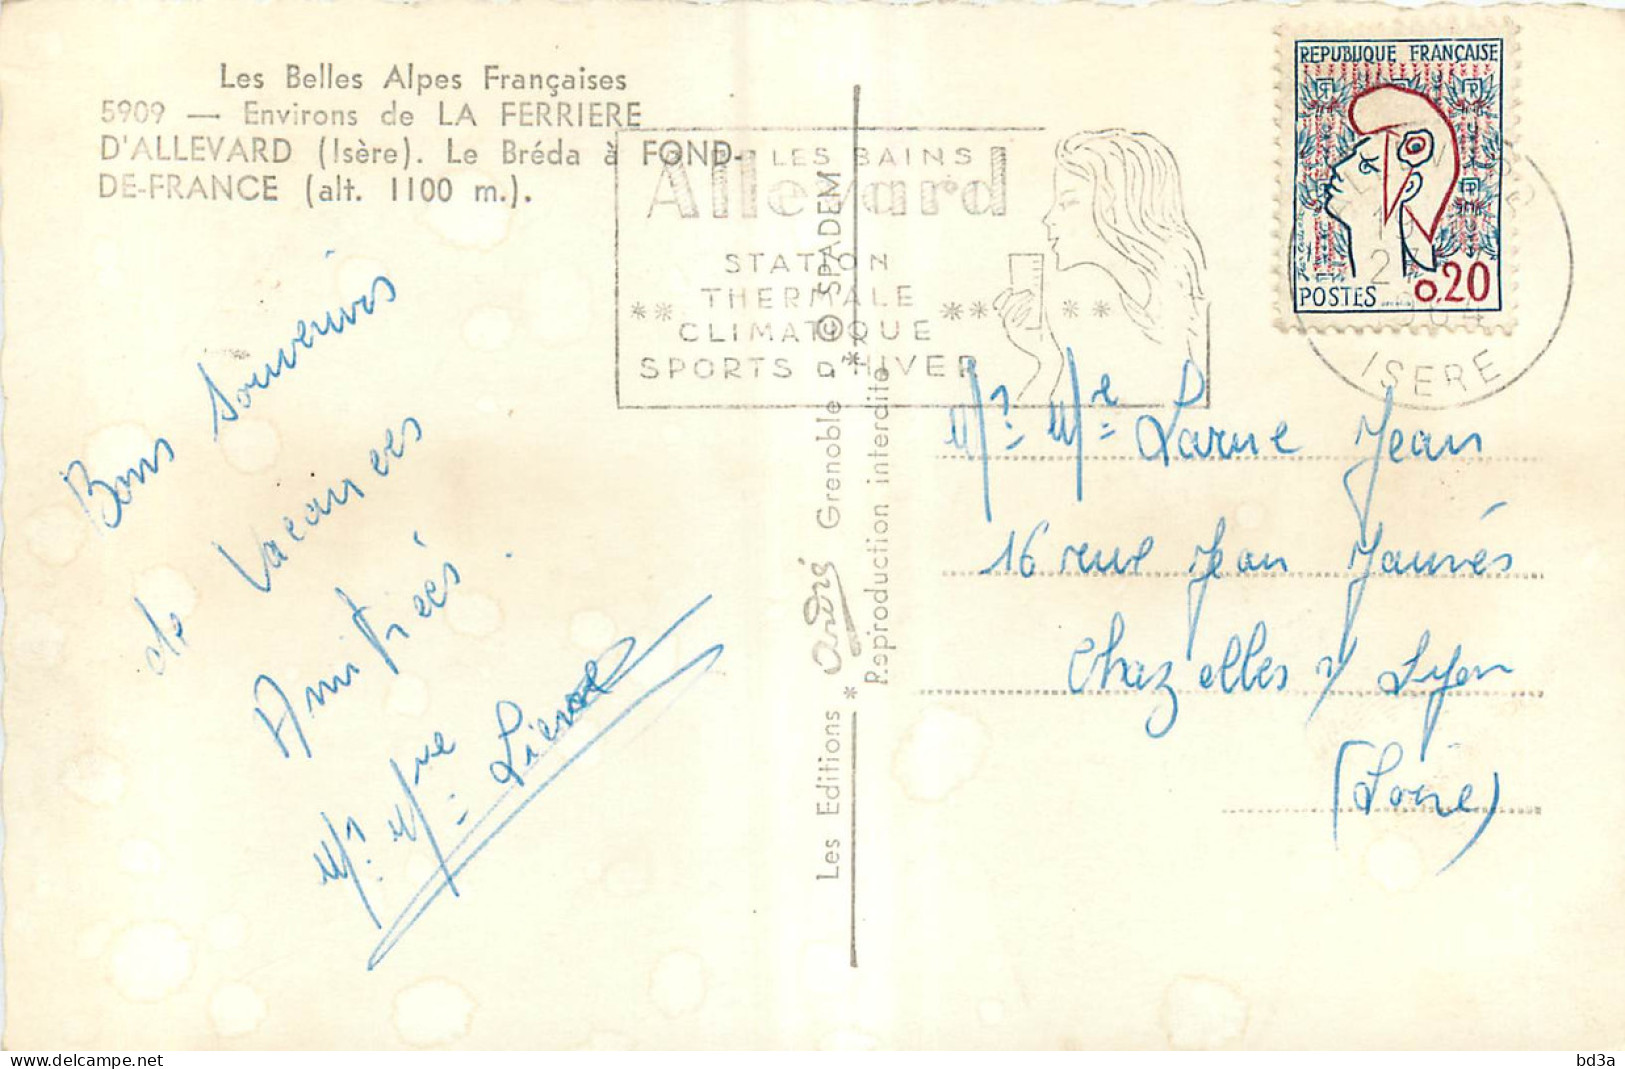 Les Belles Alpes Françaises
5909 — Environs de LA FERRIERE
D'ALLEVARD (Isère). Le Bréda à FOND-
DE-FRANCE (alt. 1100 m.).
LES BAINS
Allevard
STATION
THERMALE
** CLIMATIQUE ** **
SPORTS D'HIVER
REPUBLIQUE FRANÇAISE
POSTES 0.20
ISERE
Bons Souvenirs
de Vacances
Amitiés.
Mr. Mme
Les Editions * André Grenoble * © SPADEM
Reproduction interdite
Mr. Me Larue Jean
16 rue Jean Jaurés
Chazelles s/ Lyon
(Loire)
bd3a